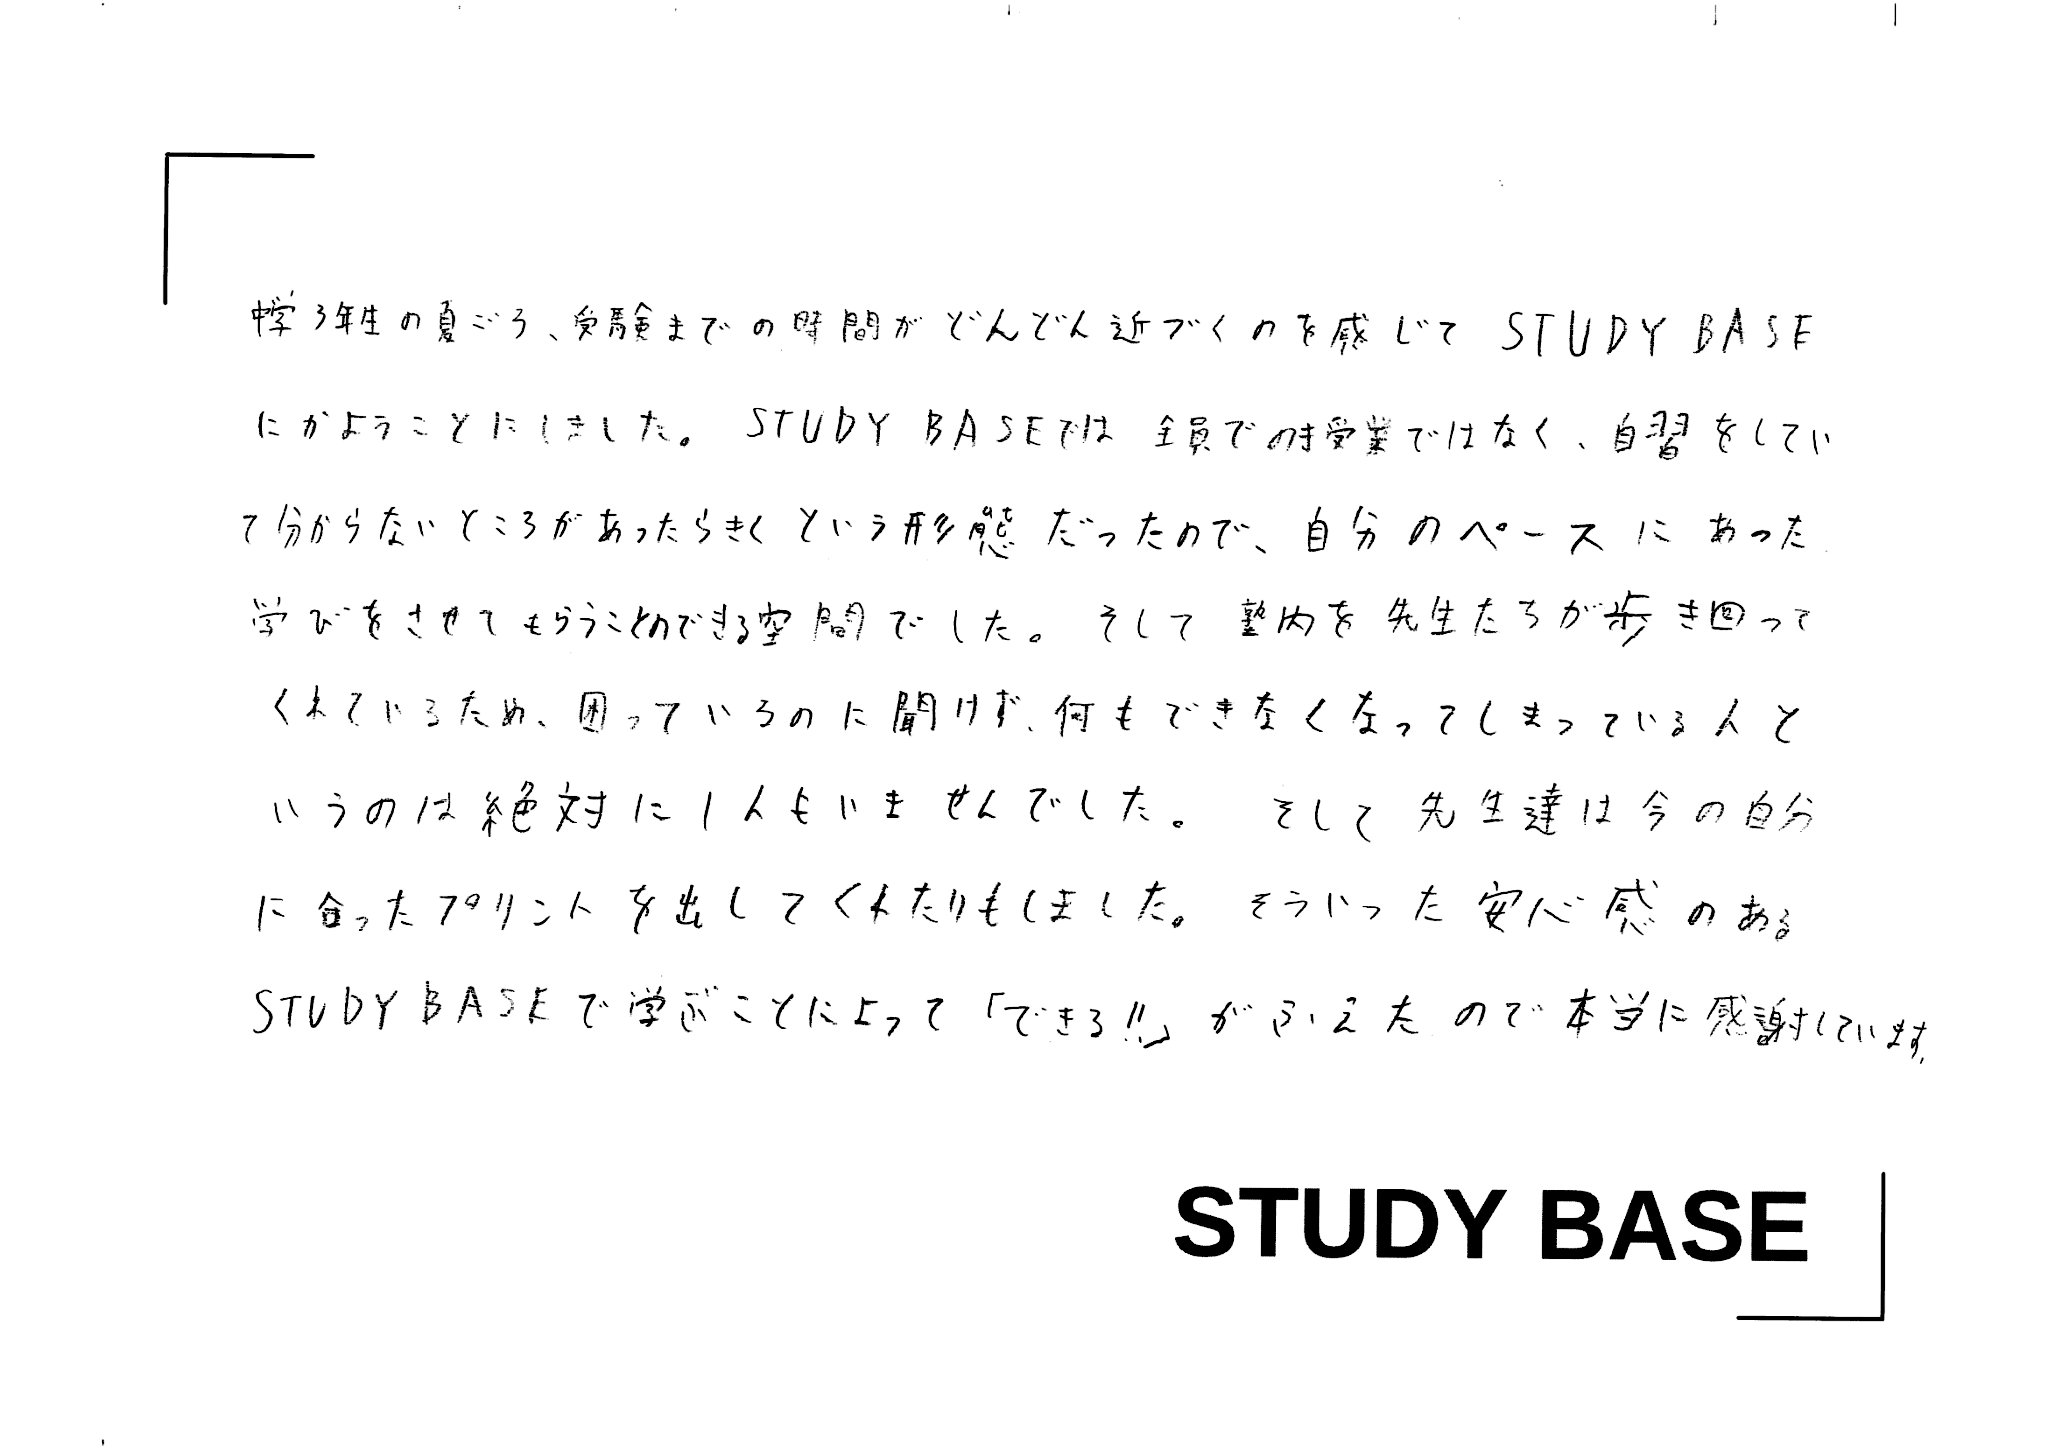 中学3年生の夏ごろ、受験までの時間がどんどん近づくのを感じてSTUDY BASE
にかようことにしました。 STUDY BASEでは全員での授業ではなく、自習をしてい
て分からないところがあったらきくという形態だったので、自分のペースにあった
学びをさせてもらうことのできる空間でした。そして塾内を先生たちが歩き回って
くれているため、困っているのに聞けず、何もできなくなってしまっている人と
いうのは絶対に1人もいませんでした。 そして先生達は今の自分
に合ったプリントを出してくれたりもしました。そういった安心感のある
STUDY BASEで学ぶことによって「できる!!」がふえたので本当に感謝しています。
STUDY BASE